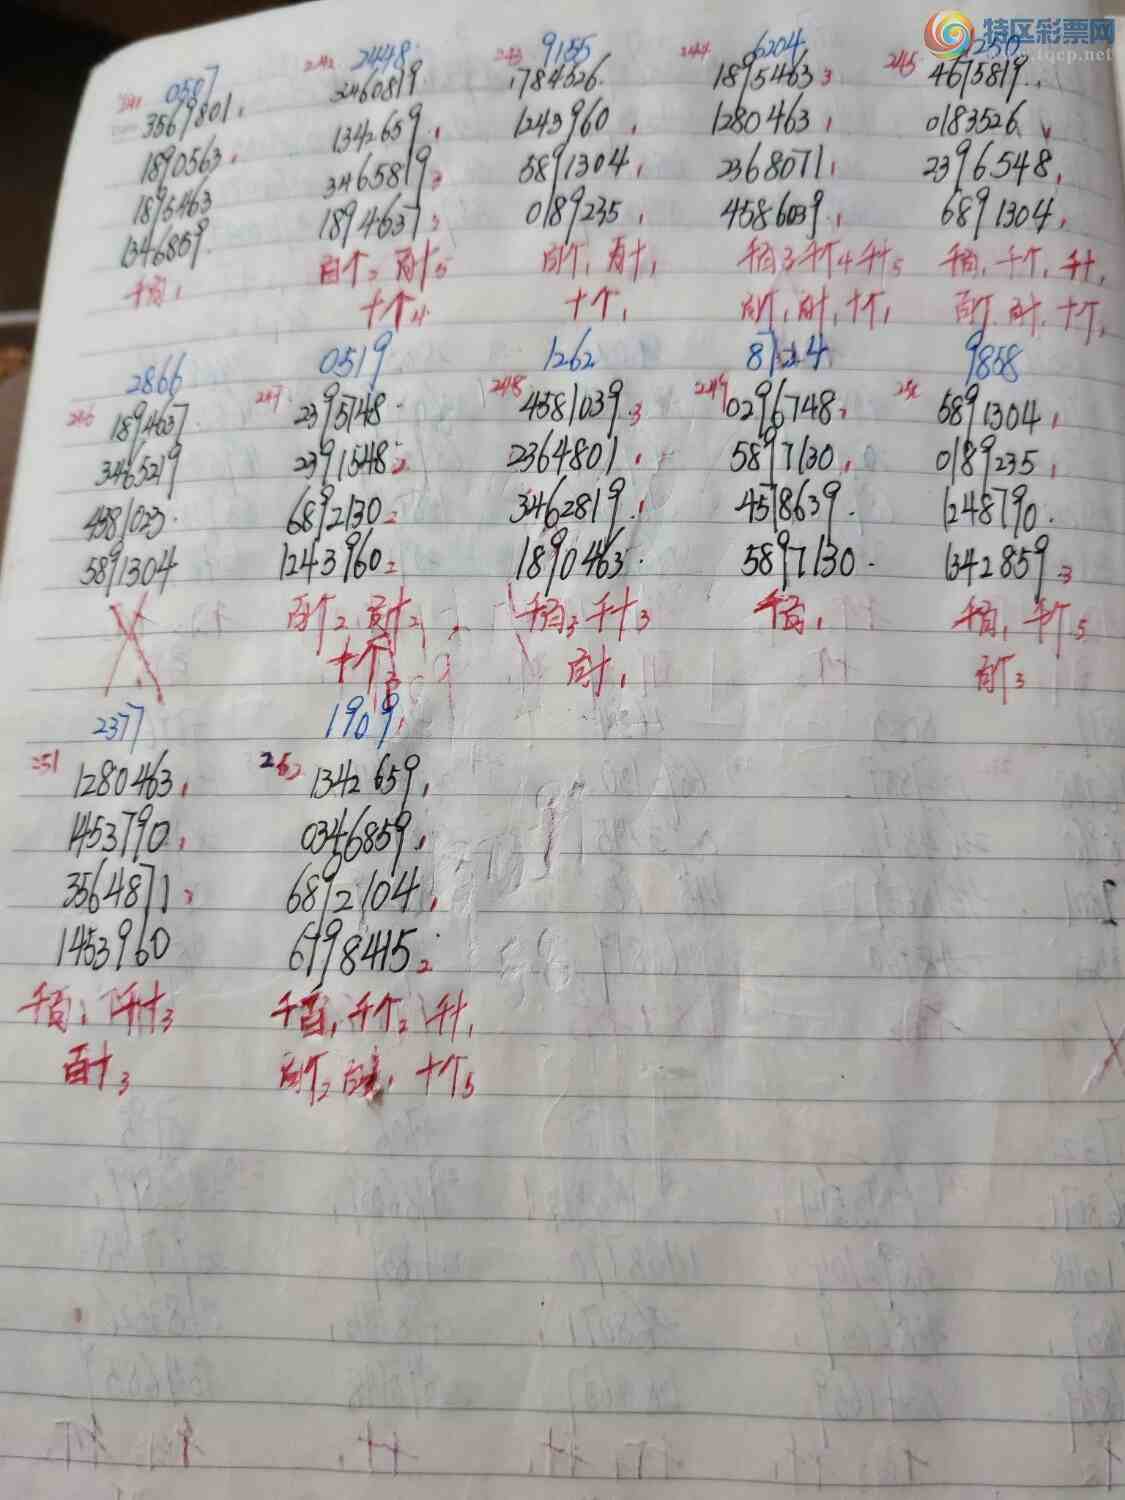 特区彩票网
tqcp.net
241 0507
3569801.
1890563.
1895463
1346859.
千百1
242 2448
3460819
1342659.
3465819.3
1894637.2
百个2 百十5
十个4
243 9155
1784526.
1243960.
5891304.
0189235.
百个1 百十1
十个1
244 6204
1895463 3
1280463.
2368071.
4586039.
千百3 千个4 千十5
百个1 百十1 十个1
245 1250
4675819.
0183526
2396548.
6891304.
千百1 千个1 千十1
百个 百十 十个1
246 2866
1894637
3465219
4581023.
5891304
X
247 0519
2395748.
2391548 2
6892130 2
1243960 2
百个2 百十2
十个3
248 1262
4581039.3
2364801.
3462819.
1890463.
千百3 千十3
百十1
249 8724
0296748 2
5897130.
4578639.
5897130.
千百1
250 9858
5891304.
0189235.
1248790.
1342859 3
千百1 千个5
百个3
251 2377
1280463.
1453790.
3564871 2
1453960
千百1 千十3
百十3
252 1909
1342659.
0346859.
6892104.
6798415 2
千百1 千个2 千十1
百个2 百十1 十个5